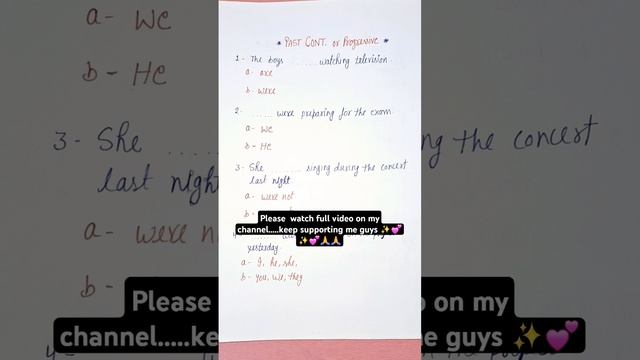 * PAST CONT. or Progressive *
1- The boys ...... watching television.
a- are
b- were
2- ...... were preparing for the exam.
a- We
b- He
3- She ......... singing during the concert
last night
a- were not
b-
Please watch full video on my
channel.....keep supporting me guys ✨💕
✨💕🙏🙏
yesterday.
a- I, he, she,
b- you, we, they
a- We
b- He
3- She .....
ng the concert
last night
a- were n
b-
Please
o on my
channel.....kee
me guys ✨💕